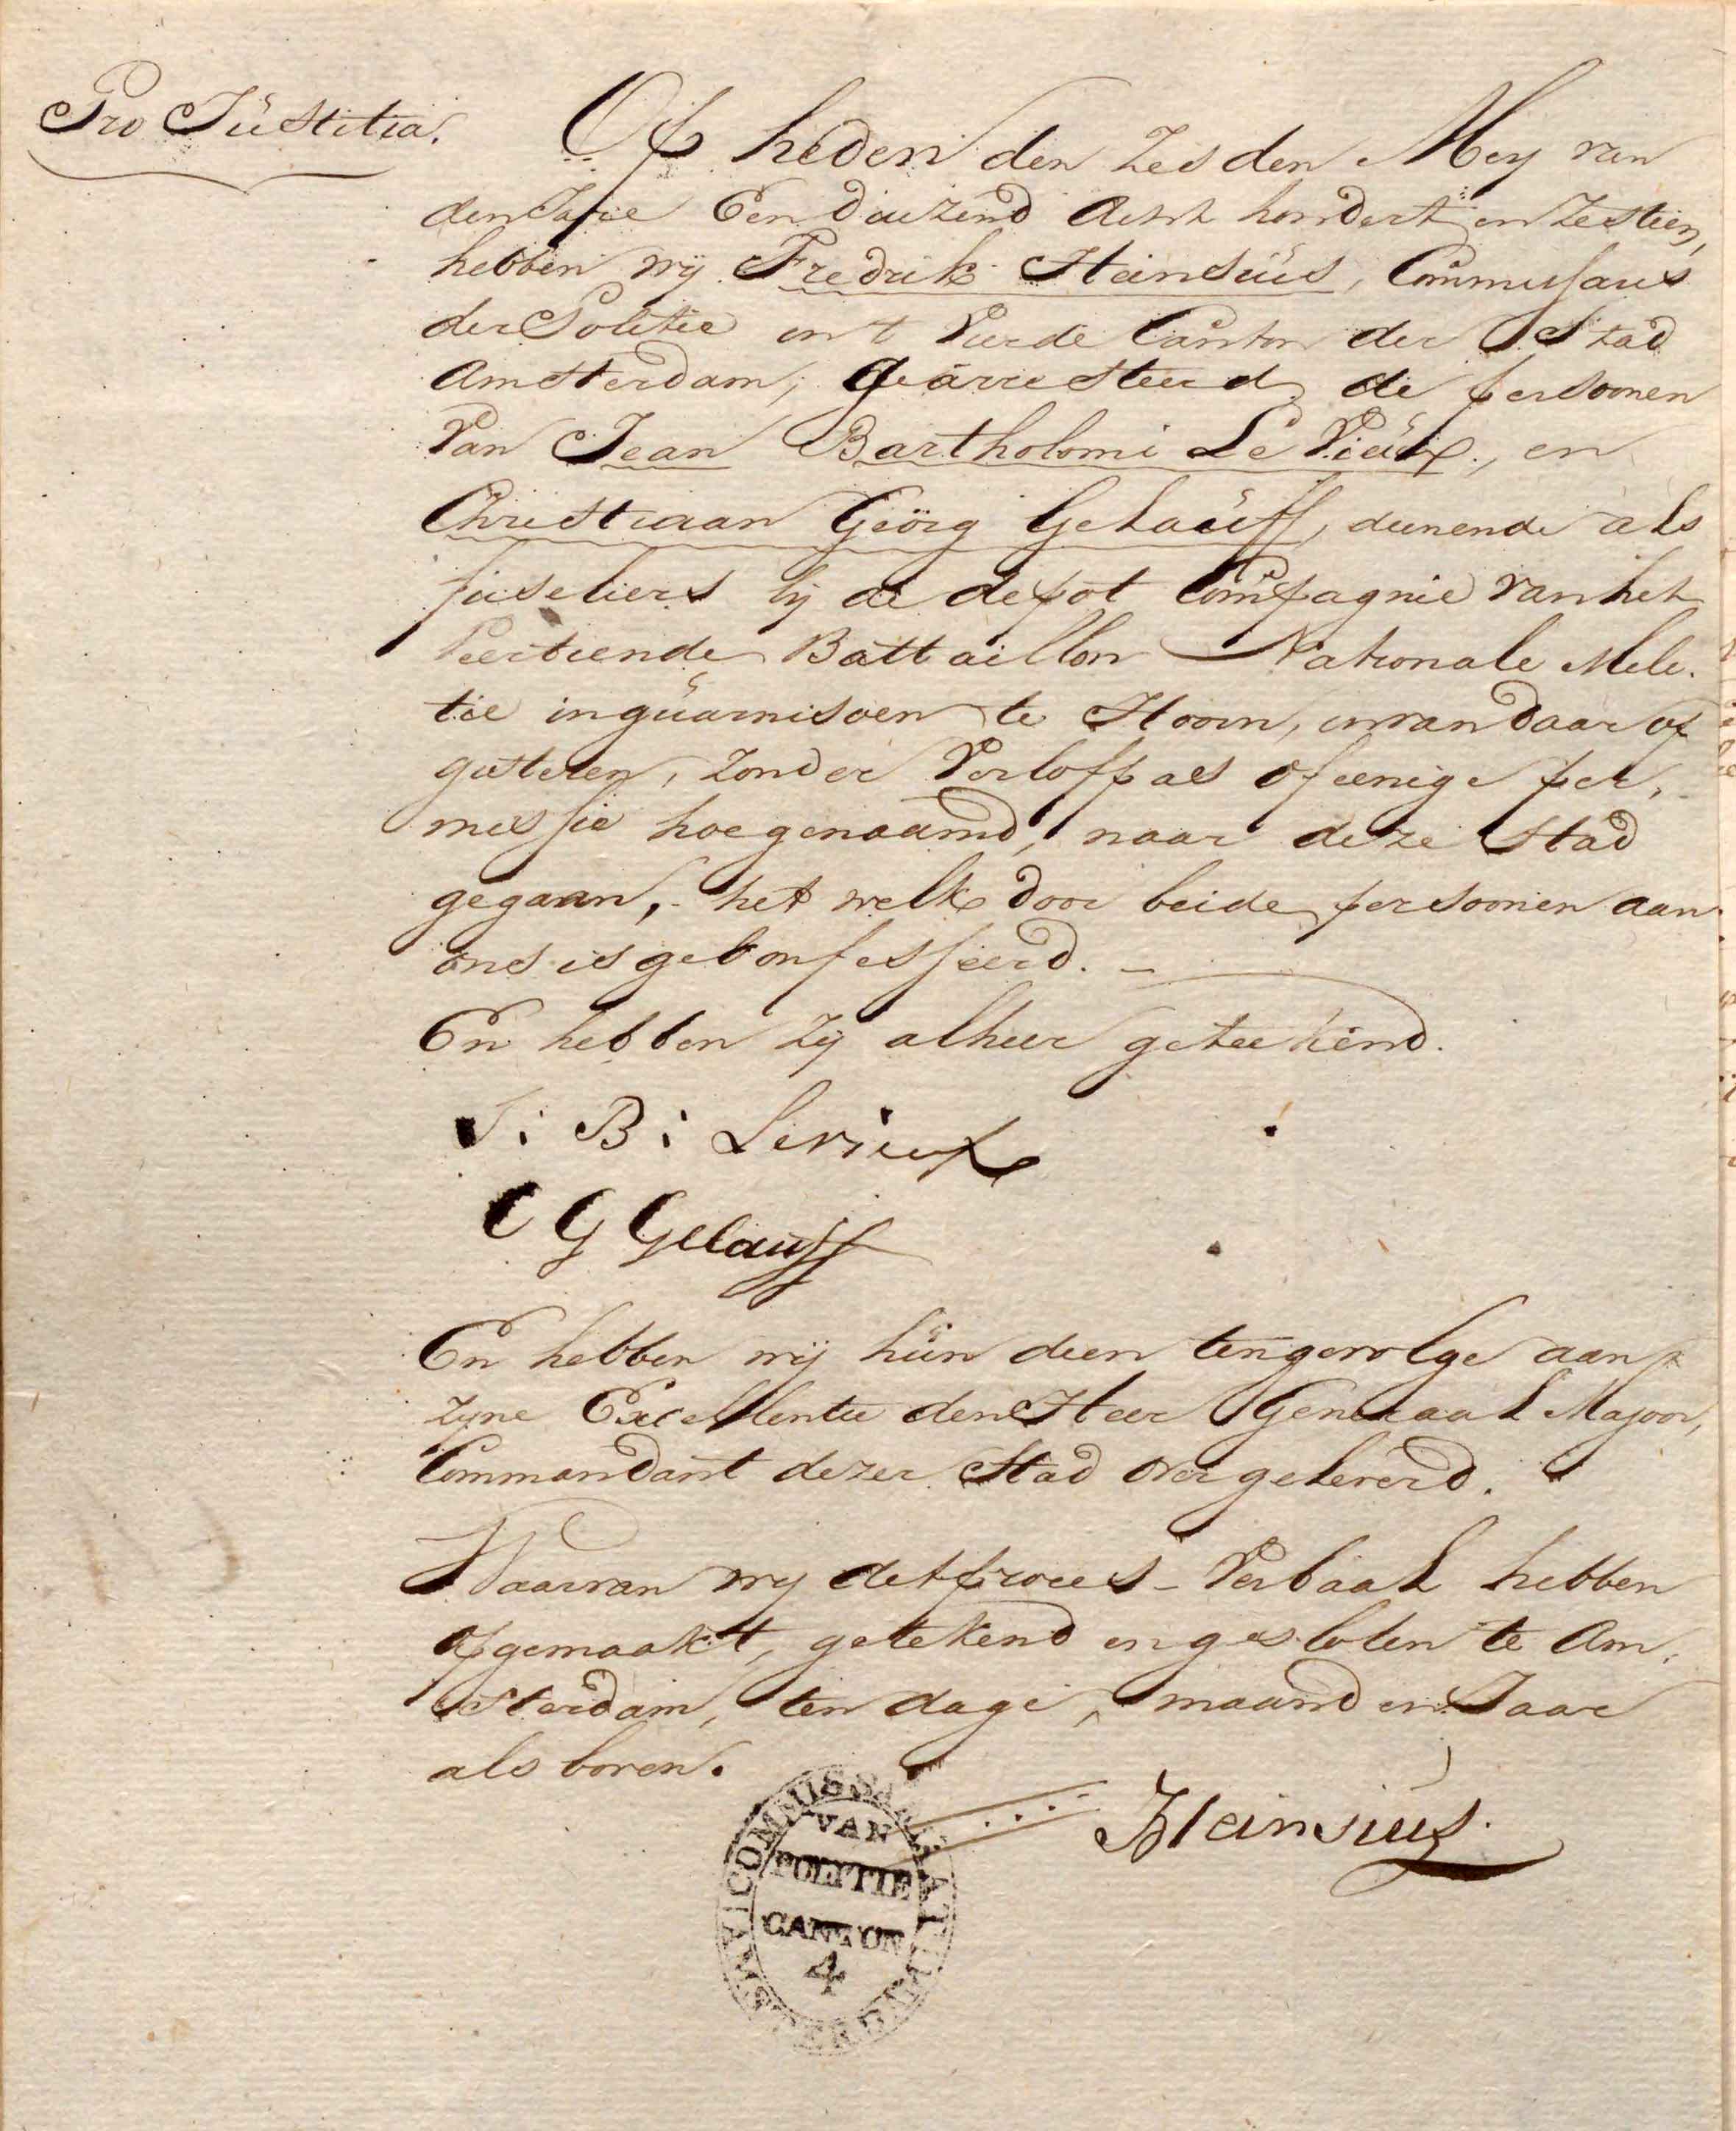 Pro Justitia.
Op heden den zesden Mey van
den Jare Een duizend acht hondert en zestien,
hebben wij Fredrik Heinsius, Commissaris
der Politie in 't vierde Canton der Stad
Amsterdam, gearresteerd de persoonen
van Jean Bartholomi Le Vieux, en
Christiaan Georg Gelauff, dienende als
fuseliers bij de depot Compagnie van het
Veertiende Battaillon Nationale Mili-
tie in guarnisoen te Hoorn, en van daar op
gisteren, zonder Verlofpas of eenige per-
missie hoegenaamd, naar deze Stad
gegaan, - het welk door beide persoonen aan
ons is geconfesseerd. -
En hebben zij alhier geteekend.
J: B: Levieux
C G Gelauff
En hebben wij hun dien tengevolge aan
zyne Excellentie den Heer Generaal Majoor,
Commandant dezer Stad overgeleverd.
Waarvan wy dit proces-Verbaal hebben
opgemaakt, getekend en gesloten te Am-
sterdam, ten dage, maand en Jaar
als boven.
Heinsius.
COMMISSARIS
VAN
POLITIE
CANTON
4
AMSTERDAM